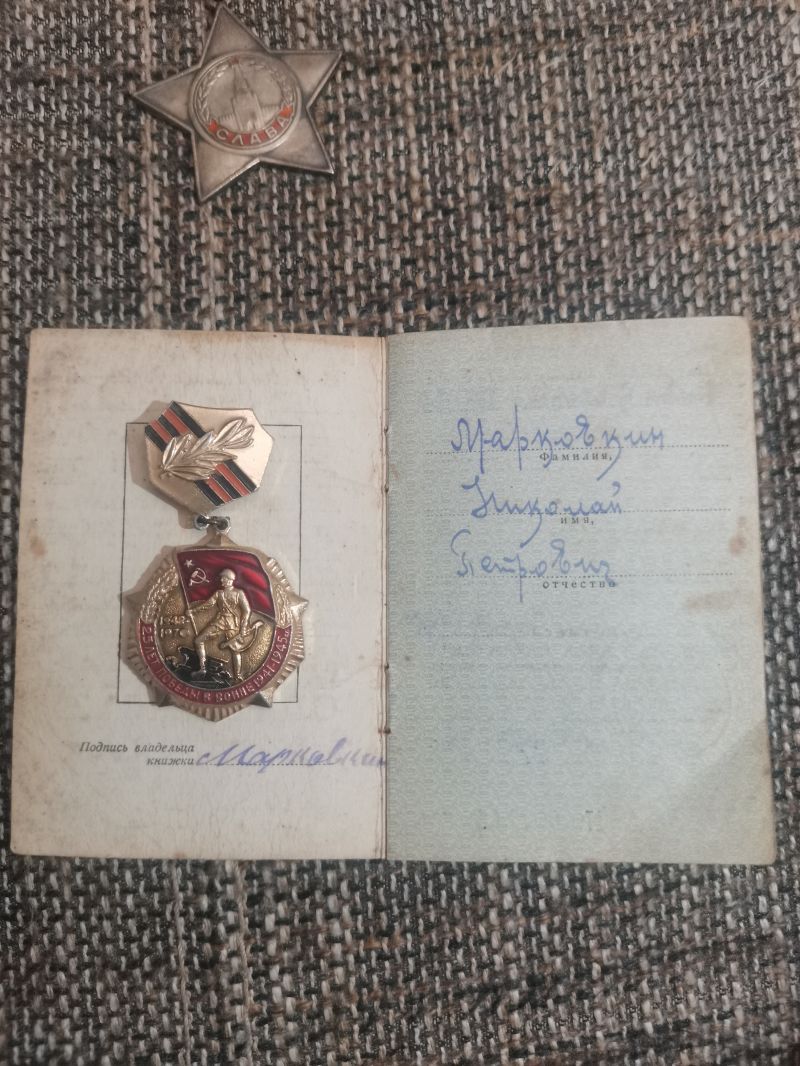 СЛАВА
1945
1970
25 ЛЕТ ПОБЕДЫ В ВОЙНЕ 1941-1945гг.
Подпись владельца
книжки Марковкин
Марковкин
фамилия,
Николай
имя,
Петрович
отчество